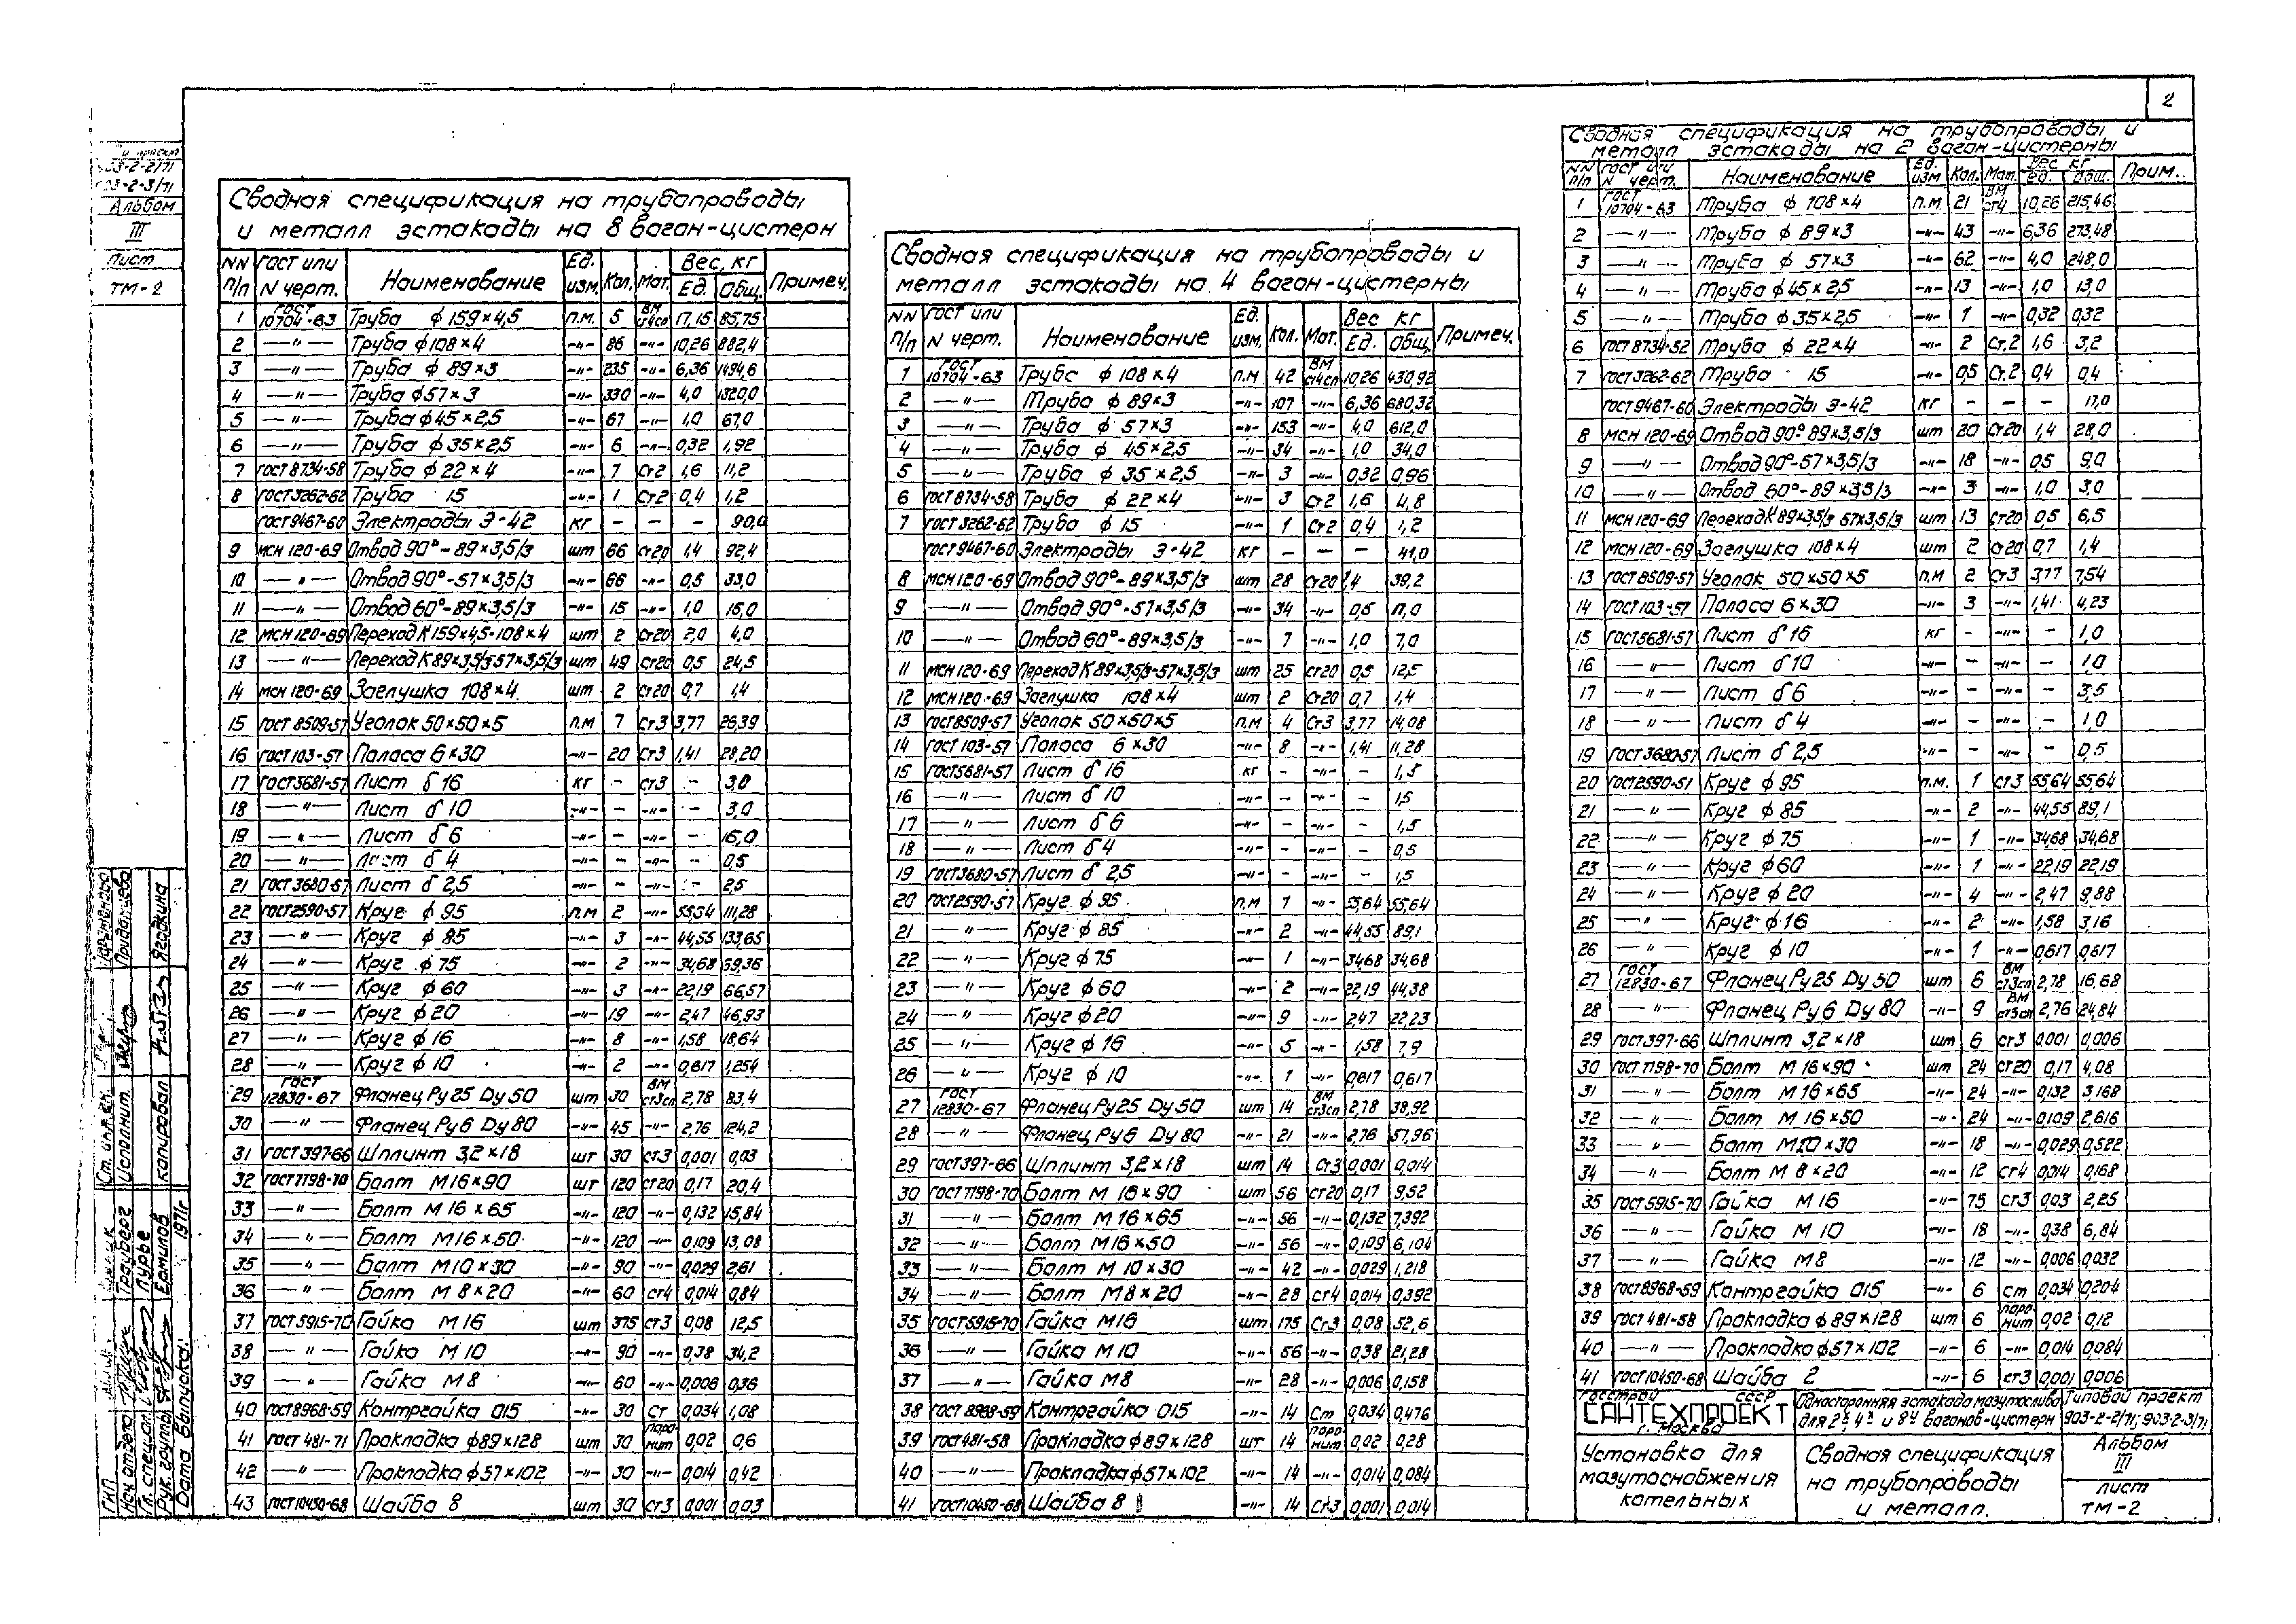 2
Альбом
III
Лист
ТМ-2
Сводная спецификация на трубопроводы
и металл эстакады на 8 вагон-цистерн
NN п/п ГОСТ или N черт. Наименование Ед. изм. Кол. Мат. Вес, кг Ед. Общ. Примеч.
1 ГОСТ 10704-63 Труба ф 159×4,5 п.м. 5 ВМ ст4сп 17,15 85,75
2 —"— Труба ф108×4 -"- 86 -"- 10,26 882,4
3 —"— Труба ф 89×3 -"- 235 -"- 6,36 1494,6
4 —"— Труба ф57×3 -"- 330 -"- 4,0 1320,0
5 —"— Труба ф45×2,5 -"- 67 -"- 1,0 67,0
6 —"— Труба ф35×2,5 -"- 6 -"- 0,32 1,92
7 ГОСТ 8734-58 Труба ф22×4 -"- 7 Ст2 1,6 11,2
8 ГОСТ3262-62 Труба 15 -"- 1 Ст2 0,4 1,2
ГОСТ9467-60 Электроды Э-42 кг - - - 90,0
9 МСН 120-69 Отвод 90°-89×3,5/3 шт 66 Ст20 1,4 92,4
10 —"— Отвод 90°-57×3,5/3 -"- 66 -"- 0,5 33,0
11 —"— Отвод 60°-89×3,5/3 -"- 15 -"- 1,0 15,0
12 МСН 120-69 Переход К159×4,5-108×4 шт 2 Ст20 2,0 4,0
13 —"— Переход К89×3,5/3-57×3,5/3 шт 49 Ст20 0,5 24,5
14 МСН 120-69 Заглушка 108×4 шт 2 Ст20 0,7 1,4
15 ГОСТ 8509-57 Уголок 50×50×5 п.м 7 Ст3 3,77 26,39
16 ГОСТ103-57 Полоса 6×30 -"- 20 Ст3 1,41 28,20
17 ГОСТ5681-57 Лист δ 16 кг - ст3 - 3,0
18 —"— Лист δ 10 -"- - -"- - 3,0
19 —"— Лист δ 6 -"- - -"- - 16,0
20 —"— Лист δ 4 -"- - -"- - 0,5
21 ГОСТ3680-57 Лист δ 2,5 -"- - -"- - 2,5
22 ГОСТ2590-57 Круг ф 95 п.м 2 -"- 55,54 111,28
23 —"— Круг ф 85 -"- 3 -"- 44,55 133,65
24 —"— Круг ф 75 -"- 2 -"- 34,68 69,36
25 —"— Круг ф 60 -"- 3 -"- 22,19 66,57
26 —"— Круг ф20 -"- 19 -"- 2,47 46,93
27 —"— Круг ф 16 -"- 8 -"- 1,58 18,64
28 —"— Круг ф 10 -"- 2 -"- 0,617 1,254
29 ГОСТ 12830-67 Фланец Ру25 Ду50 шт 30 ВМ ст3сп 2,78 83,4
30 —"— Фланец Ру6 Ду80 -"- 45 -"- 2,76 124,2
31 ГОСТ397-66 Шплинт 3,2×18 шт 30 ст3 0,001 0,03
32 ГОСТ7798-70 Болт М16×90 шт 120 ст20 0,17 20,4
33 —"— Болт М 16×65 -"- 120 -"- 0,132 15,84
34 —"— Болт М16×50 -"- 120 -"- 0,109 13,08
35 —"— Болт М10×30 -"- 90 -"- 0,029 2,61
36 —"— Болт М 8×20 -"- 60 ст4 0,014 0,84
37 ГОСТ5915-70 Гайка М16 шт 375 ст3 0,08 12,5
38 —"— Гайка М10 -"- 90 -"- 0,38 34,2
39 —"— Гайка М8 -"- 60 -"- 0,006 0,36
40 ГОСТ8968-59 Контргайка 015 -"- 30 Ст 0,034 1,08
41 ГОСТ 481-71 Прокладка ф89×128 шт 30 паронит 0,02 0,6
42 —"— Прокладка ф57×102 -"- 30 -"- 0,014 0,42
43 ГОСТ10450-68 Шайба 8 шт 30 ст3 0,001 0,03
Сводная спецификация на трубопроводы и
металл эстакады на 4 вагон-цистерны
NN п/п ГОСТ или N черт. Наименование Ед. изм. Кол. Мат. Вес кг Ед. Общ. Примеч.
1 ГОСТ 10704-63 Труба ф 108×4 п.м 42 ВМ ст4сп 10,26 430,92
2 —"— Труба ф 89×3 -"- 107 -"- 6,36 680,32
3 —"— Труба ф 57×3 -"- 153 -"- 4,0 612,0
4 —"— Труба ф 45×2,5 -"- 34 -"- 1,0 34,0
5 —"— Труба ф 35×2,5 -"- 3 -"- 0,32 0,96
6 ГОСТ8734-58 Труба ф 22×4 -"- 3 Ст2 1,6 4,8
7 ГОСТ3262-62 Труба ф 15 -"- 1 Ст2 0,4 1,2
ГОСТ9467-60 Электроды Э-42 кг — — — 41,0
8 МСН120-69 Отвод 90°-89×3,5/3 шт 28 Ст20 1,4 39,2
9 —"— Отвод 90°-57×3,5/3 -"- 34 -"- 0,5 17,0
10 —"— Отвод 60°-89×3,5/3 -"- 7 -"- 1,0 7,0
11 МСН120-69 Переход К89×3,5/3-57×3,5/3 шт 25 ст20 0,5 12,5
12 МСН120-69 Заглушка 108×4 шт 2 Ст20 0,7 1,4
13 ГОСТ8509-57 Уголок 50×50×5 п.м 4 Ст3 3,77 14,08
14 ГОСТ 103-57 Полоса 6×30 -"- 8 -"- 1,41 11,28
15 ГОСТ5681-57 Лист δ 16 кг - -"- - 1,5
16 —"— Лист δ 10 -"- - -"- - 1,5
17 —"— Лист δ 6 -"- - -"- - 1,5
18 —"— Лист δ 4 -"- - -"- - 0,5
19 ГОСТ3680-57 Лист δ 2,5 -"- - -"- - 1,5
20 ГОСТ2590-57 Круг ф 95 п.м 1 -"- 55,64 55,64
21 —"— Круг ф 85 -"- 2 -"- 44,55 89,1
22 —"— Круг ф 75 -"- 1 -"- 34,68 34,68
23 —"— Круг ф 60 -"- 2 -"- 22,19 44,38
24 —"— Круг ф20 -"- 9 -"- 2,47 22,23
25 —"— Круг ф 16 -"- 5 -"- 1,58 7,9
26 —"— Круг ф 10 -"- 1 -"- 0,617 0,617
27 ГОСТ 12830-67 Фланец Ру25 Ду50 шт 14 ВМ ст3сп 2,78 38,92
28 —"— Фланец Ру6 Ду 80 -"- 21 -"- 2,76 57,96
29 ГОСТ397-66 Шплинт 3,2×18 шт 14 Ст3 0,001 0,014
30 ГОСТ7798-70 Болт М 16×90 шт 56 ст20 0,17 9,52
31 —"— Болт М 16×65 -"- 56 -"- 0,132 7,392
32 —"— Болт М16×50 -"- 56 -"- 0,109 6,104
33 —"— Болт М 10×30 -"- 42 -"- 0,029 1,218
34 —"— Болт М8×20 -"- 28 ст4 0,014 0,392
35 ГОСТ5915-70 Гайка М16 шт 175 Ст3 0,08 52,6
36 —"— Гайка М10 -"- 56 -"- 0,38 21,28
37 —"— Гайка М8 -"- 28 -"- 0,006 0,158
38 ГОСТ 8968-59 Контргайка 015 -"- 14 Ст 0,034 0,476
39 ГОСТ481-58 Прокладка ф89×128 шт 14 паронит 0,02 0,28
40 —"— Прокладка ф57×102 -"- 14 -"- 0,014 0,084
41 ГОСТ10450-68 Шайба 8 -"- 14 Ст3 0,001 0,014
Сводная спецификация на трубопроводы и
металл эстакады на 2 вагон-цистерны
NN п/п ГОСТ или N черт. Наименование Ед. изм Кол. Мат. Вес кг ед. общ. Прим.
1 ГОСТ 10704-63 Труба ф 108×4 п.м. 21 ВМ ст4 10,26 215,46
2 —"— Труба ф 89×3 -"- 43 -"- 6,36 273,48
3 —"— Труба ф 57×3 -"- 62 -"- 4,0 248,0
4 —"— Труба ф45×2,5 -"- 13 -"- 1,0 13,0
5 —"— Труба ф35×2,5 -"- 1 -"- 0,32 0,32
6 ГОСТ8734-52 Труба ф 22×4 -"- 2 Ст.2 1,6 3,2
7 ГОСТ3262-62 Труба 15 -"- 0,5 Ст.2 0,4 0,4
ГОСТ9467-60 Электроды Э-42 кг - - - 17,0
8 МСН 120-69 Отвод 90°-89×3,5/3 шт 20 Ст20 1,4 28,0
9 —"— Отвод 90°-57×3,5/3 -"- 18 -"- 0,5 9,0
10 —"— Отвод 60°-89×3,5/3 -"- 3 -"- 1,0 3,0
11 МСН 120-69 Переход К89×3,5/3 57×3,5/3 шт 13 ст20 0,5 6,5
12 МСН 120-69 Заглушка 108×4 шт 2 Ст20 0,7 1,4
13 ГОСТ8509-57 Уголок 50×50×5 п.м 2 Ст3 3,77 7,54
14 ГОСТ103-57 Полоса 6×30 -"- 3 -"- 1,41 4,23
15 ГОСТ5681-57 Лист δ 16 кг - -"- - 1,0
16 —"— Лист δ 10 -"- - -"- - 1,0
17 —"— Лист δ 6 -"- - -"- - 3,5
18 —"— Лист δ 4 -"- - -"- - 1,0
19 ГОСТ3680-57 Лист δ 2,5 -"- - -"- - 0,5
20 ГОСТ2590-51 Круг ф 95 п.м. 1 Ст3 55,64 55,64
21 —"— Круг ф 85 -"- 2 -"- 44,55 89,1
22 —"— Круг ф 75 -"- 1 -"- 34,68 34,68
23 —"— Круг ф60 -"- 1 -"- 22,19 22,19
24 —"— Круг ф 20 -"- 4 -"- 2,47 9,88
25 —"— Круг ф 16 -"- 2 -"- 1,58 3,16
26 —"— Круг ф 10 -"- 1 -"- 0,617 0,617
27 ГОСТ 12830-67 Фланец Ру25 Ду 50 шт 6 ВМ ст3сп 2,78 16,68
28 —"— Фланец Ру6 Ду 80 -"- 9 ВМ ст3сп 2,76 24,84
29 ГОСТ397-66 Шплинт 3,2×18 шт 6 ст3 0,001 0,006
30 ГОСТ7798-70 Болт М 16×90 шт 24 ст20 0,17 4,08
31 —"— Болт М 16×65 -"- 24 -"- 0,132 3,168
32 —"— Болт М 16×50 -"- 24 -"- 0,109 2,616
33 —"— Болт М10×30 -"- 18 -"- 0,029 0,522
34 —"— Болт М 8×20 -"- 12 Ст4 0,014 0,168
35 ГОСТ5915-70 Гайка М 16 -"- 75 Ст3 0,03 2,25
36 —"— Гайка М 10 -"- 18 -"- 0,38 6,84
37 —"— Гайка М8 -"- 12 -"- 0,006 0,032
38 ГОСТ8968-59 Контргайка 015 -"- 6 ст 0,034 0,204
39 ГОСТ 481-58 Прокладка ф 89×128 шт 6 паронит 0,02 0,12
40 —"— Прокладка ф57×102 -"- 6 -"- 0,014 0,084
41 ГОСТ10450-68 Шайба 2 -"- 6 ст3 0,001 0,006
Госстрой СССР
САНТЕХПРОЕКТ
г. Москва
Односторонняя эстакада мазутослива
для 2х 4х и 8и вагонов-цистерн
Типовой проект
903-2-2/71; 903-2-3/71
Установка для
мазутоснабжения
котельных
Сводная спецификация
на трубопроводы
и металл.
Альбом
III
лист
ТМ-2
ГИП
Нач. отдела Трауберг
Гл. специал. Лурье
Рук. группы Ермилов
Дата выпуска: 1971г
Ст. инж.
Исполнит. Приданцева
Копировал Ягодкина